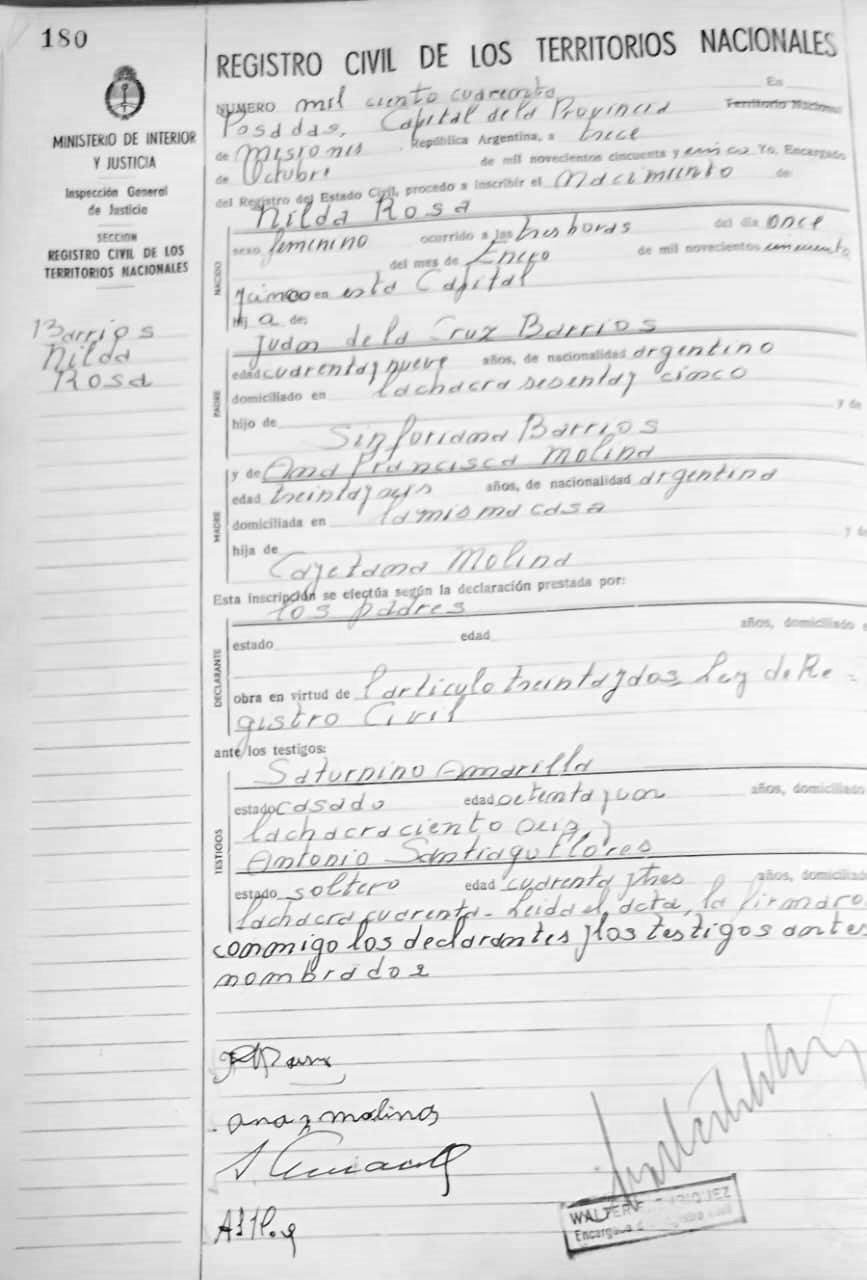 180
REGISTRO CIVIL DE LOS TERRITORIOS NACIONALES
MINISTERIO DE INTERIOR
Y JUSTICIA
Inspección General
de Justicia
SECCION
REGISTRO CIVIL DE LOS
TERRITORIOS NACIONALES
Barrios
Nilda
Rosa
NUMERO mil ciento cuarenta En
Posadas, Capital de la Provincia Territorio Nacional
de Misiones República Argentina, a trece
de Octubre de mil novecientos cincuenta y cinco Yo, Encargado
del Registro del Estado Civil, procedo a inscribir el Nacimiento de
Nilda Rosa
NACIDO
sexo femenino ocurrido a las tres horas del dia once
del mes de Enero de mil novecientos cincuenta
y cinco en esta Capital
hij a de:
PADRE
Juan de la Cruz Barrios
edad cuarenta y nueve años, de nacionalidad argentino
domiciliado en la chacra sesenta y cinco
hijo de y de
Sinforiana Barrios
MADRE
y de Ana Francisca Molina
edad treinta y seis años, de nacionalidad argentina
domiciliada en la misma casa
hija de y de
Cayetana Molina
Esta inscripción se efectúa según la declaración prestada por:
los padres
DECLARANTE
estado edad años, domiciliado
obra en virtud de l articulo treinta y dos Ley de Re=
gistro Civil
ante los testigos:
TESTIGOS
Saturnino Amarilla
estado casado edad setenta y un años, domiciliado
la chacra ciento seis y
Antonio Santiago Flores
estado soltero edad cuarenta y tres años, domiciliado
la chacra cuarenta- Leida el acta, la firmaron
conmigo los declarantes y los testigos antes
nombrados
ana molinas
WALTER
Encargado